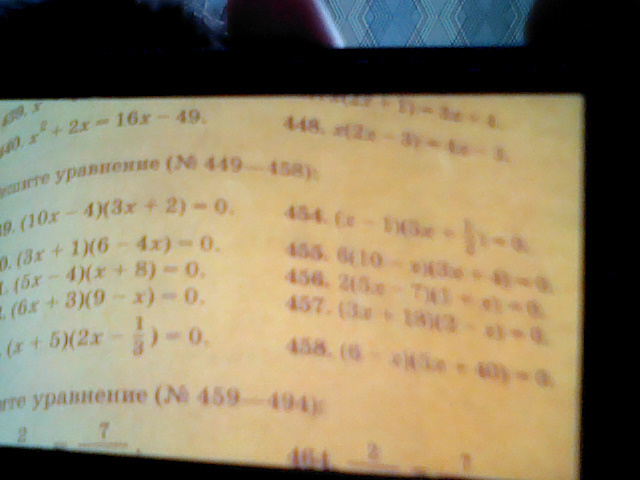 439. x
440. x² + 2x = 16x − 49.
448. x(2x − 3) = 4x − 3.
уравнение (№ 449—458):
(10x − 4)(3x + 2) = 0.
(3x + 1)(6 − 4x) = 0.
(5x − 4)(x + 8) = 0.
(6x + 3)(9 − x) = 0.
(x + 5)(2x − 1/3) = 0.
454. (x − 1)(5x + 1/2) = 0.
455. 6(10 − x)(3x + 4) = 0.
456. 2(5x − 7)(1 + x) = 0.
457. (3x + 13)(2 − x) = 0.
458. (6 − x)(5x + 40) = 0.
уравнение (№ 459—494):
2 = 7
464. 2 = 7